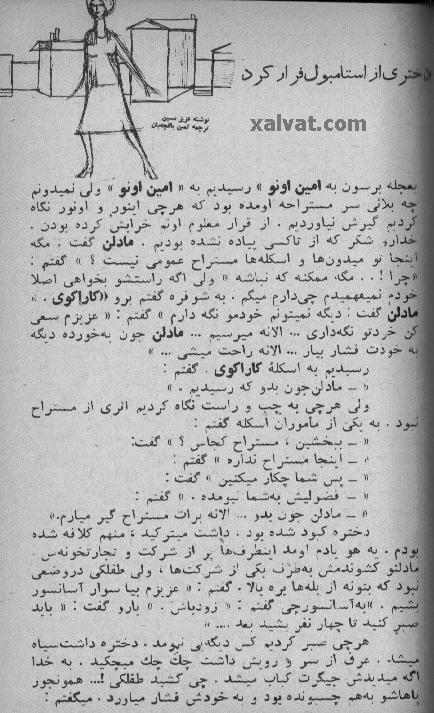 دختری از استامبول فرار کرد
نوشته عزیز نسین
ترجمه ثمین باغچه‌بان
xalvat.com
بعجله برسون به امین اونو » رسیدیم به « امین اونو » ولی نمیدونم
چه بلائی سر مستراحه اومده بود که هرچی اینور و اونور نگاه
کردیم گیرش نیاوردیم . از قرار معلوم اونم خرابش کرده بودن .
خدارو شکر که از تاکسی پیاده نشده بودیم . مادلن گفت ، مگه
اینجا تو میدون‌ها و اسکله‌ها مستراح عمومی نیست ؟ » گفتم :
«چرا !.. مگه ممکنه که نباشه » ولی اگه راستشو بخواهی اصلا
خودم نمیفهمیدم چی‌دارم میگم . به شوفره گفتم برو «کاراکوی . »
مادلن گفت : دیگه نمیتونم خودمو نگه دارم » گفتم : « عزیزم سعی
کن خردتو نگه‌داری ... الانه میرسیم ... مادلن جون یه‌خورده دیگه
به خودت فشار بیار ... الانه راحت میشی ... »
رسیدیم به اسکلهٔ کاراکوی . گفتم :
« ـ مادلن‌جون بدو که رسیدیم . »
ولی هرچی به چپ و راست نگاه کردیم اثری از مستراح
نبود . به یکی از مأموران اسکله گفتم :
« ـ ببخشین ، مستراح کجاس ؟ » گفت:
« ـ اینجا مستراح نداره » گفتم :
« ـ پس شما چکار میکنین » گفت :
« ـ فضولیش به‌شما نیومده . » گفتم :
« ـ مادلن جون بدو ... الانه برات مستراح گیر میارم.»
دختره کبود شده بود . داشت میترکید ، منهم کلافه شده
بودم . یه هو یادم اومد اینطرف‌ها پر از شرکت و تجارتخونه‌س .
مادلنو کشوندمش به‌طرف یکی از شرکت‌ها ، ولی طفلکی دروضعی
نبود که بتونه از پله‌ها بره بالا . گفتم : « عزیزم بیا سوار آسانسور
بشیم . »به‌آسانسورچی گفتم : « زودباش . » یارو گفت : « باید
صبر کنید تا چهار نفر بشید بعد .... »
هرچی صبر کردیم کس دیگه‌یی نیومد . دختره داشت‌سیاه
میشد . عرق از سر و رویش داشت چك چك میچکید . به خدا
اگه میدیدش جیگرت کباب میشد . چی کشید طفلکی !... همونجور
پاهاشو به‌هم چسبونده بود و به خودش فشار میاورد . میگفتم :